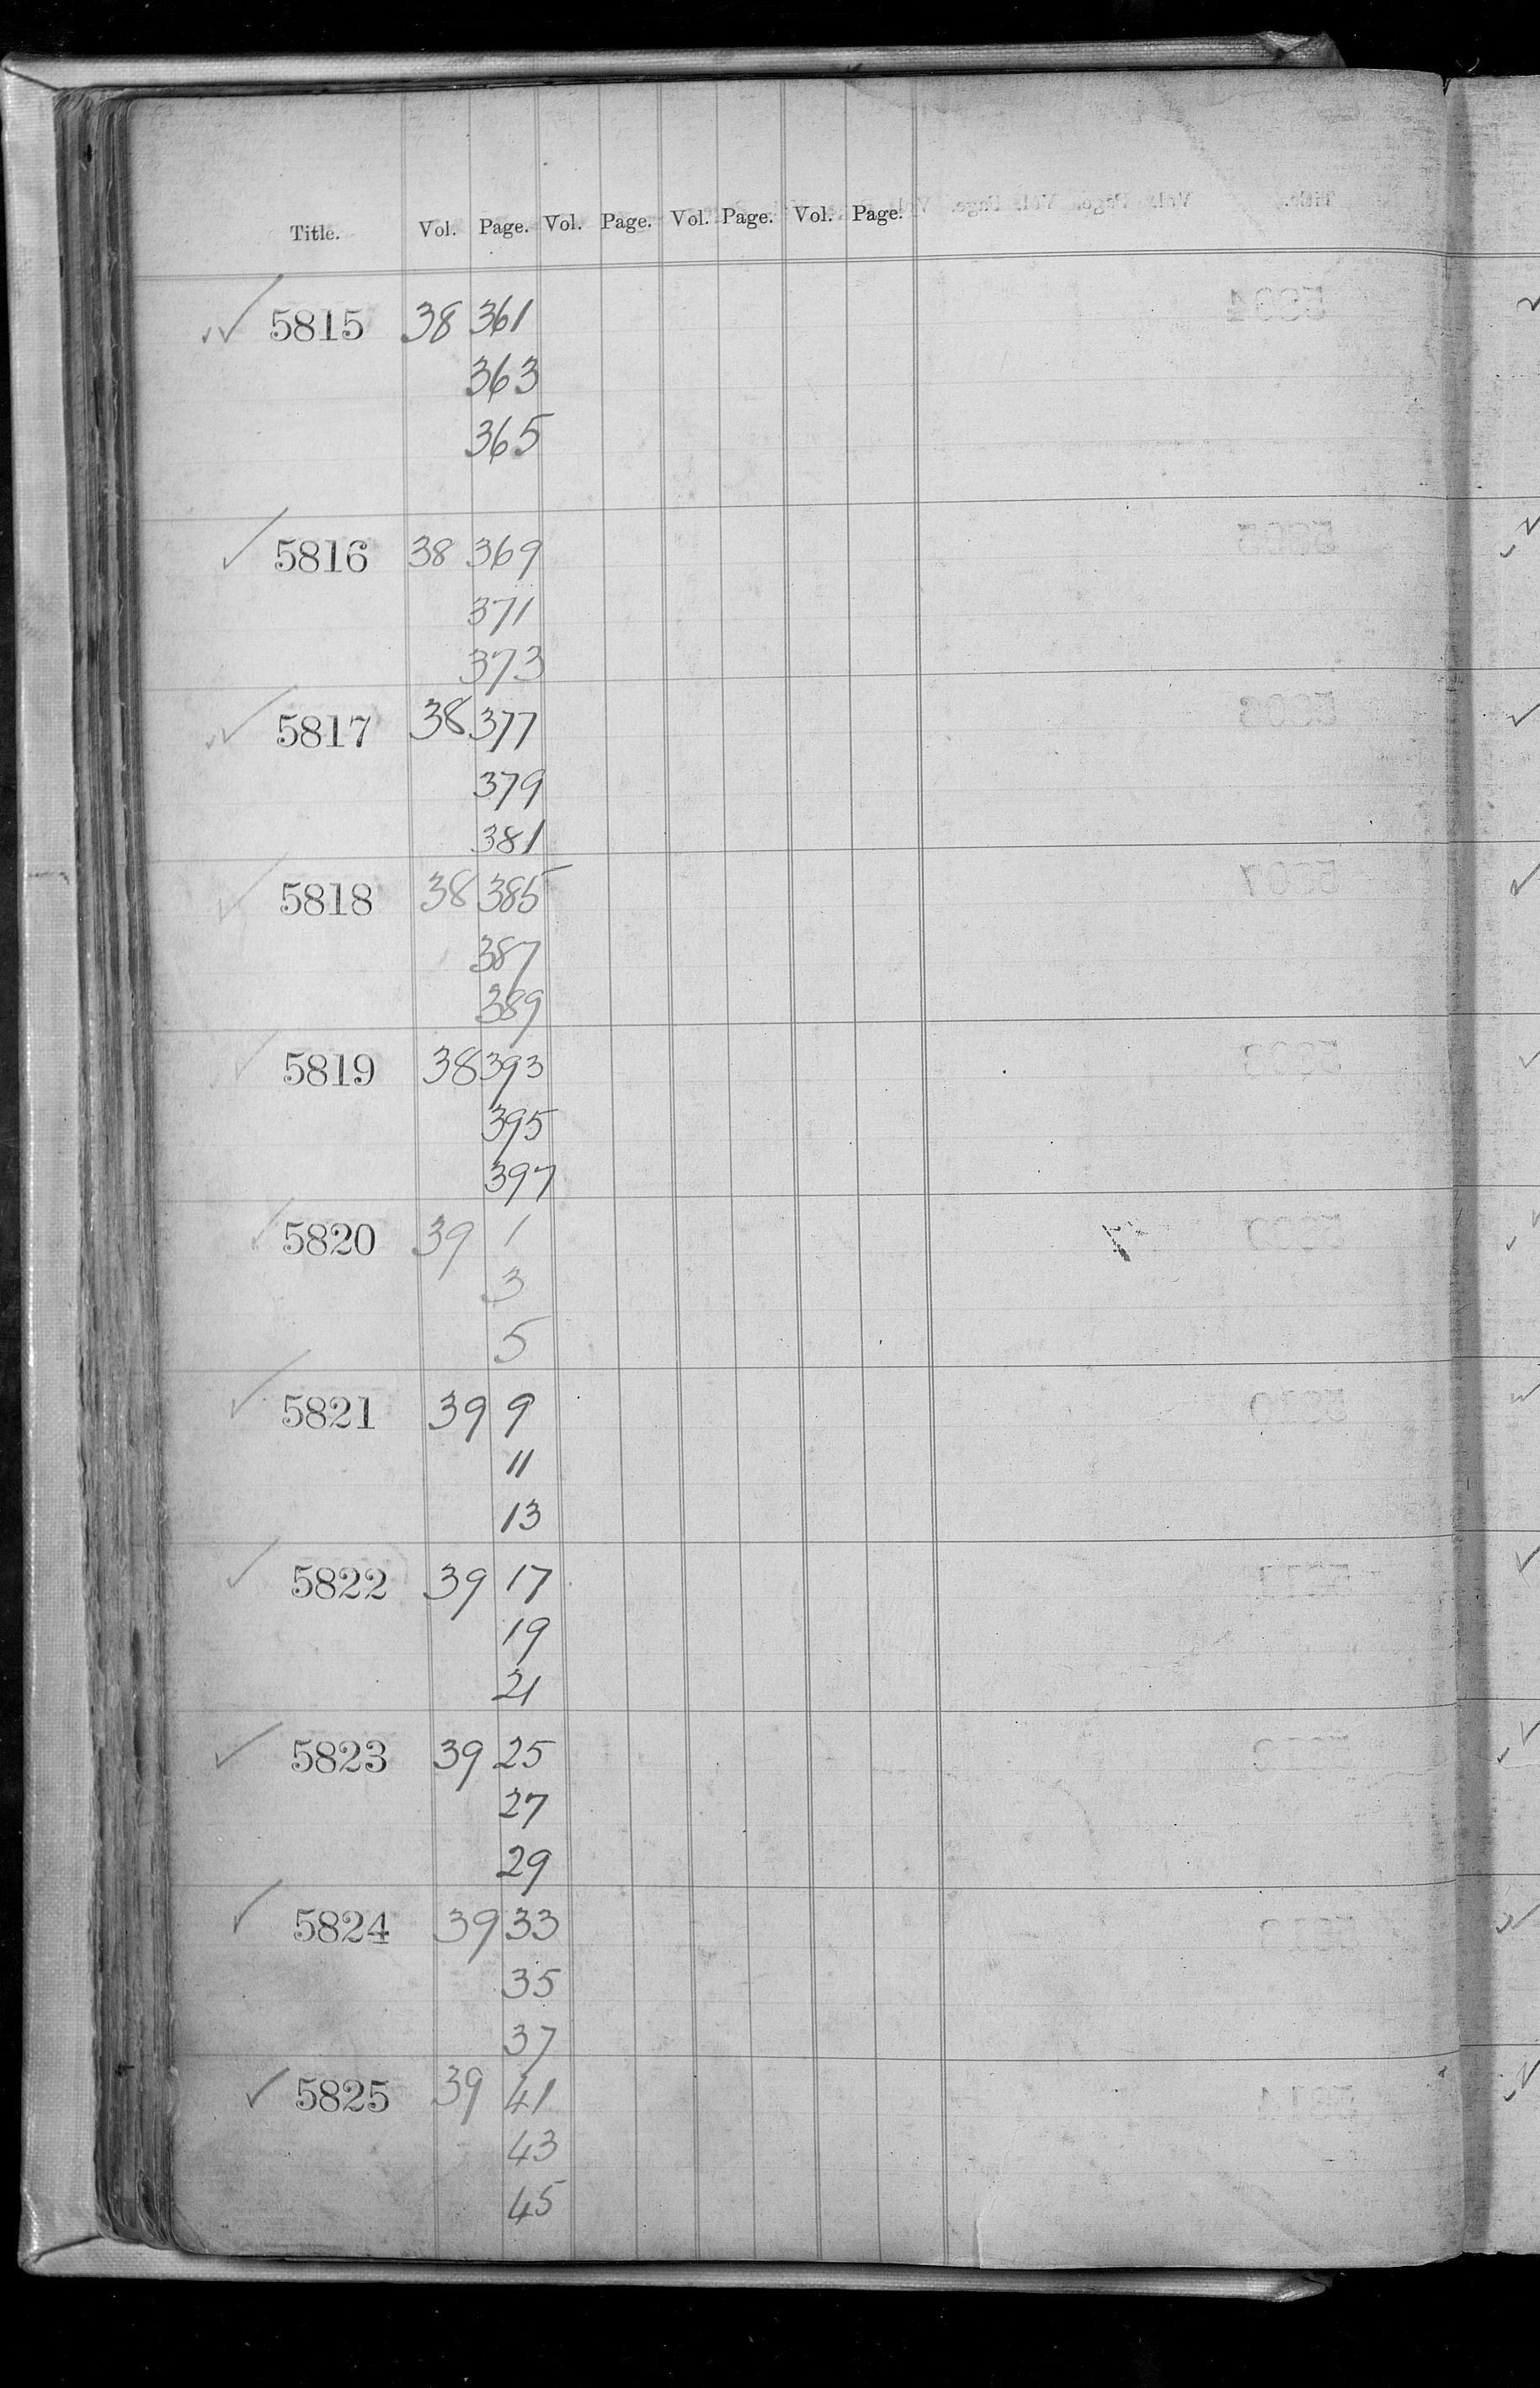 Title. Vol. Page. Vol. Page. Vol. Page. Vol. Page.
✓✓ 5815 38 361
363
365
✓ 5816 38 369
371
373
✓✓ 5817 38 377
379
381
✓ 5818 38 385
387
389
✓ 5819 38 393
395
397
✓ 5820 39 1
3
5
✓ 5821 39 9
11
13
✓ 5822 39 17
19
21
✓ 5823 39 25
27
29
✓ 5824 39 33
35
37
✓ 5825 39 41
43
45